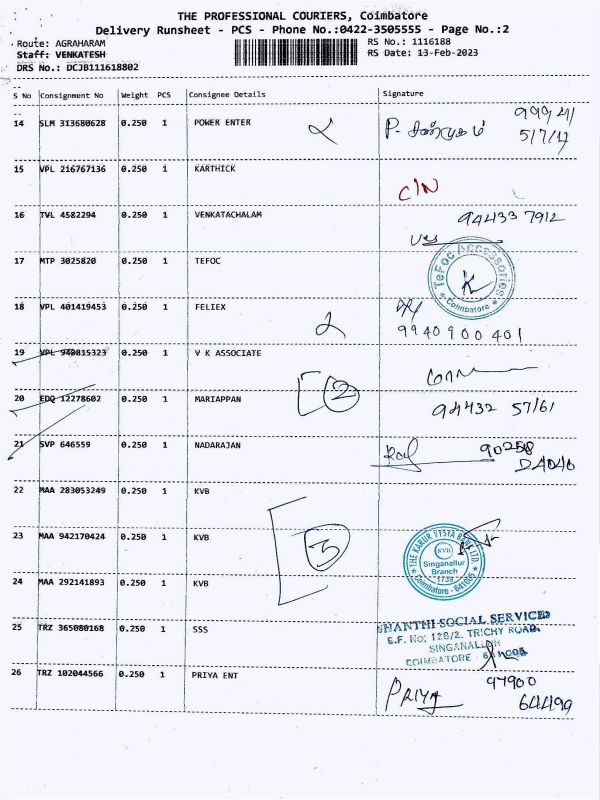 THE PROFESSIONAL COURIERS, Coimbatore
Delivery Runsheet - PCS - Phone No.:0422-3505555 - Page No.:2
Route: AGRAHARAM
RS No.: 1116188
Staff: VENKATESH
RS Date: 13-Feb-2023
DRS No.: DCJB111618802
S No Consignment No Weight PCS Consignee Details Signature
14 SLM 313680628 0.250 1 POWER ENTER
15 VPL 216767136 0.250 1 KARTHICK
C/N
16 TVL 4582294 0.250 1 VENKATACHALAM 94433 7912
17 MTP 3025820 0.250 1 TEFOC
TeFoc Accessories
Coimbatore
18 VPL 401419453 0.250 1 FELIEX
2
9940900401
19 VPL 940815323 0.250 1 V K ASSOCIATE
20 EDQ 12278602 0.250 1 MARIAPPAN 2
94432 57161
21 SVP 646559 0.250 1 NADARAJAN
90258
22 MAA 283053249 0.250 1 KVB
23 MAA 942170424 0.250 1 KVB 3
THE KARUR VYSYA BANK LTD.
KVB
Singanallur
Branch
1739
24 MAA 292141893 0.250 1 KVB
SHANTHI SOCIAL SERVICES
25 TRZ 365080168 0.250 1 SSS
S.F. No: 128/2. TRICHY ROAD.
SINGANALLUR
COIMBATORE
26 TRZ 102044566 0.250 1 PRIYA ENT
PRIYA
97900
64499